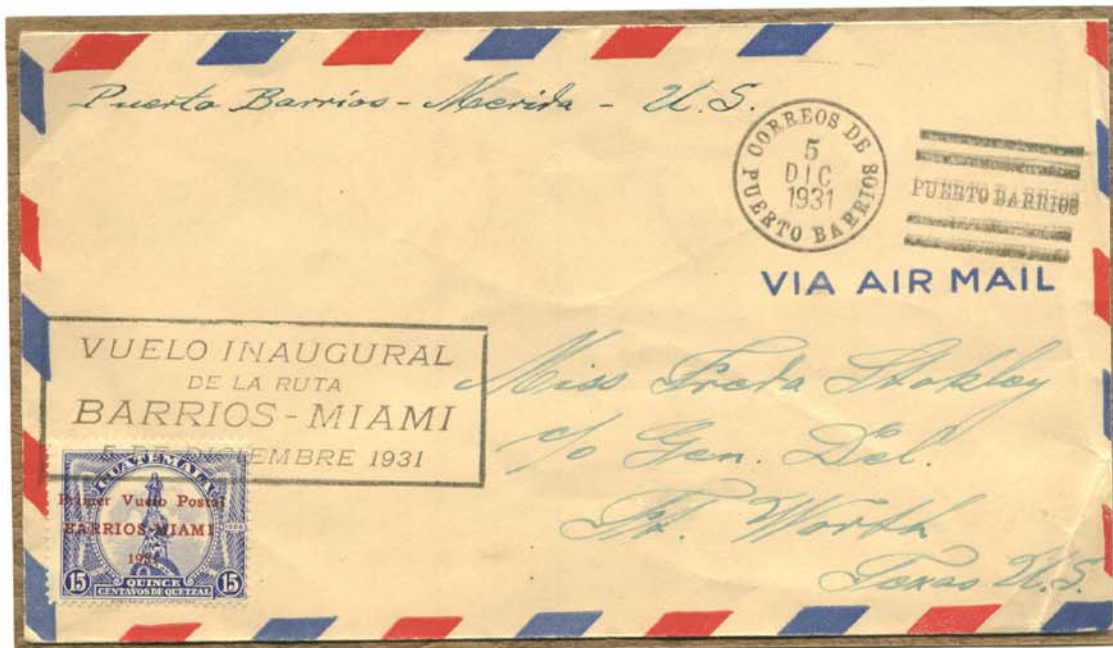 Puerto Barrios - Merida - U.S.
CORREOS DE
5
DIC
1931
PUERTO BARRIOS
PUERTO BARRIOS
VIA AIR MAIL
VUELO INAUGURAL
DE LA RUTA
BARRIOS - MIAMI
5 DE DICIEMBRE 1931
Miss Freda Stokley
c/o Gen. Del.
Ft. Worth
Texas U.S.
GUATEMALA
Primer Vuelo Postal
BARRIOS-MIAMI
1931
15 QUINCE 15
CENTAVOS DE QUETZAL